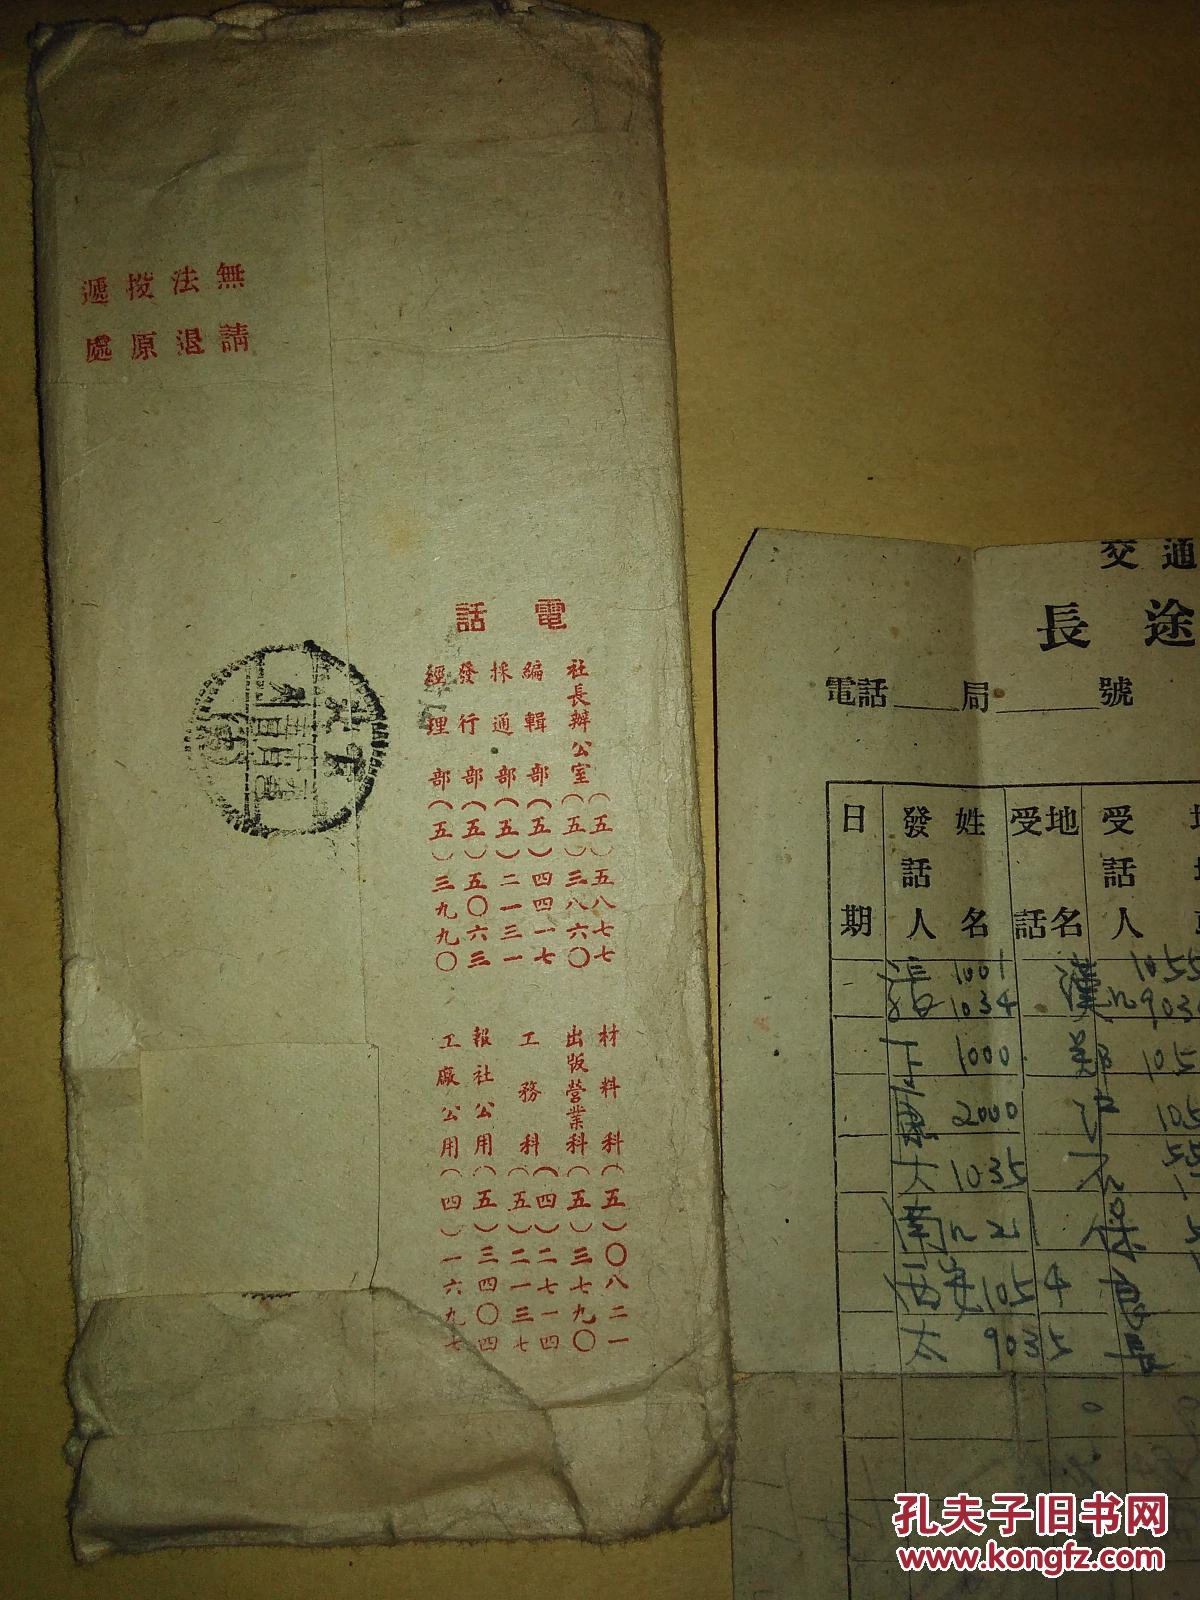 無法投遞
請退原處
電話
社長辦公室（五）五八七七
（五）三八六〇
編輯部（五）四四一七
採通部（五）二一三一
發行部（五）五〇六三
經理部（五）三九九〇
材料科（五）〇八二一
出版營業科（五）三七九〇
工務科（四）二七一四
（五）二一三七
報社公用（五）三四〇四
工廠公用（四）一六九七
交通
長途
電話 局 號
日期
發話人
姓名
受話
地名
受話人
1001
1055
1034
漢口903
1000
鄭 105
2000
滬 105
大 1035
石 55
南口 21
保 5
西安 1054
太 9035
孔夫子旧书网
www.kongfz.com